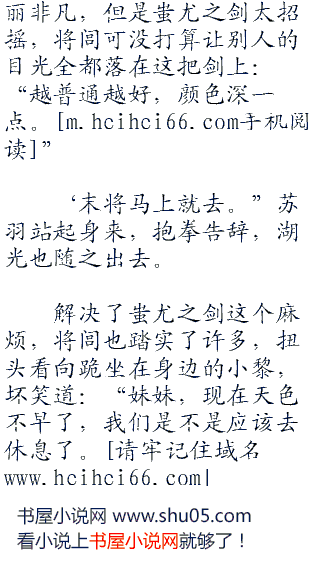 丽非凡，但是蚩尤之剑太招
摇，将闾可没打算让别人的
目光全都落在这把剑上：
“越普通越好，颜色深一
点。[m.hcihci66.com手机阅
读]”
‘末将马上就去。”苏
羽站起身来，抱拳告辞，湖
光也随之出去。
解决了蚩尤之剑这个麻
烦，将闾也踏实了许多，扭
头看向跪坐在身边的小黎，
坏笑道：“妹妹，现在天色
不早了，我们是不是应该去
休息了。[请牢记住域名
www.hcihci66.com|
书屋小说网 www.shu05.com
看小说上书屋小说网就够了！